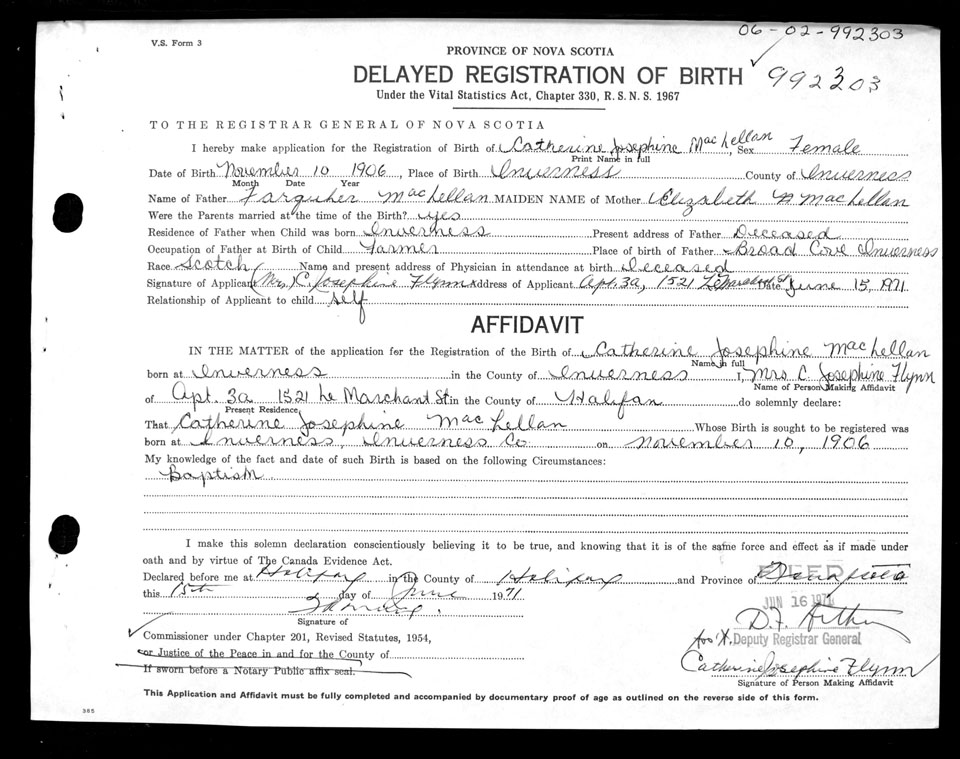 06-02-992303
V.S. Form 3
PROVINCE OF NOVA SCOTIA
DELAYED REGISTRATION OF BIRTH 992303
Under the Vital Statistics Act, Chapter 330, R.S.N.S. 1967
TO THE REGISTRAR GENERAL OF NOVA SCOTIA
I hereby make application for the Registration of Birth of Catherine Josephine MacLellan, Sex Female
Print Name in full
Date of Birth November 10 1906, Place of Birth Inverness County of Inverness
Month Date Year
Name of Father Farquher MacLellan MAIDEN NAME of Mother Elizabeth MacLellan
Were the Parents married at the time of the Birth? yes
Residence of Father when Child was born Inverness Present address of Father Deceased
Occupation of Father at Birth of Child Farmer Place of birth of Father Broad Cove Inverness
Race Scotch Name and present address of Physician in attendance at birth Deceased
Signature of Applicant (Mrs) C. Josephine Flynn Address of Applicant Apt. 3a, 1521 LeMarchant St Date June 15, 1971
Relationship of Applicant to child self
AFFIDAVIT
IN THE MATTER of the application for the Registration of the Birth of Catherine Josephine MacLellan
Name in full
born at Inverness in the County of Inverness I, Mrs C. Josephine Flynn
Name of Person Making Affidavit
of Apt. 3a 1521 Le Marchant St. in the County of Halifax do solemnly declare:
Present Residence
That Catherine Josephine MacLellan Whose Birth is sought to be registered was
born at Inverness, Inverness Co on November 10, 1906
My knowledge of the fact and date of such Birth is based on the following Circumstances:
Baptism
I make this solemn declaration conscientiously believing it to be true, and knowing that it is of the same force and effect as if made under
oath and by virtue of The Canada Evidence Act.
FILED
Declared before me at Halifax in the County of Halifax and Province of Nova Scotia
this 15th day of June 1971
JUN 16 1971
Signature of
Commissioner under Chapter 201, Revised Statutes, 1954,
Deputy Registrar General
or Justice of the Peace in and for the County of
If sworn before a Notary Public affix seal.
Catherine Josephine Flynn
Signature of Person Making Affidavit
This Application and Affidavit must be fully completed and accompanied by documentary proof of age as outlined on the reverse side of this form.
385